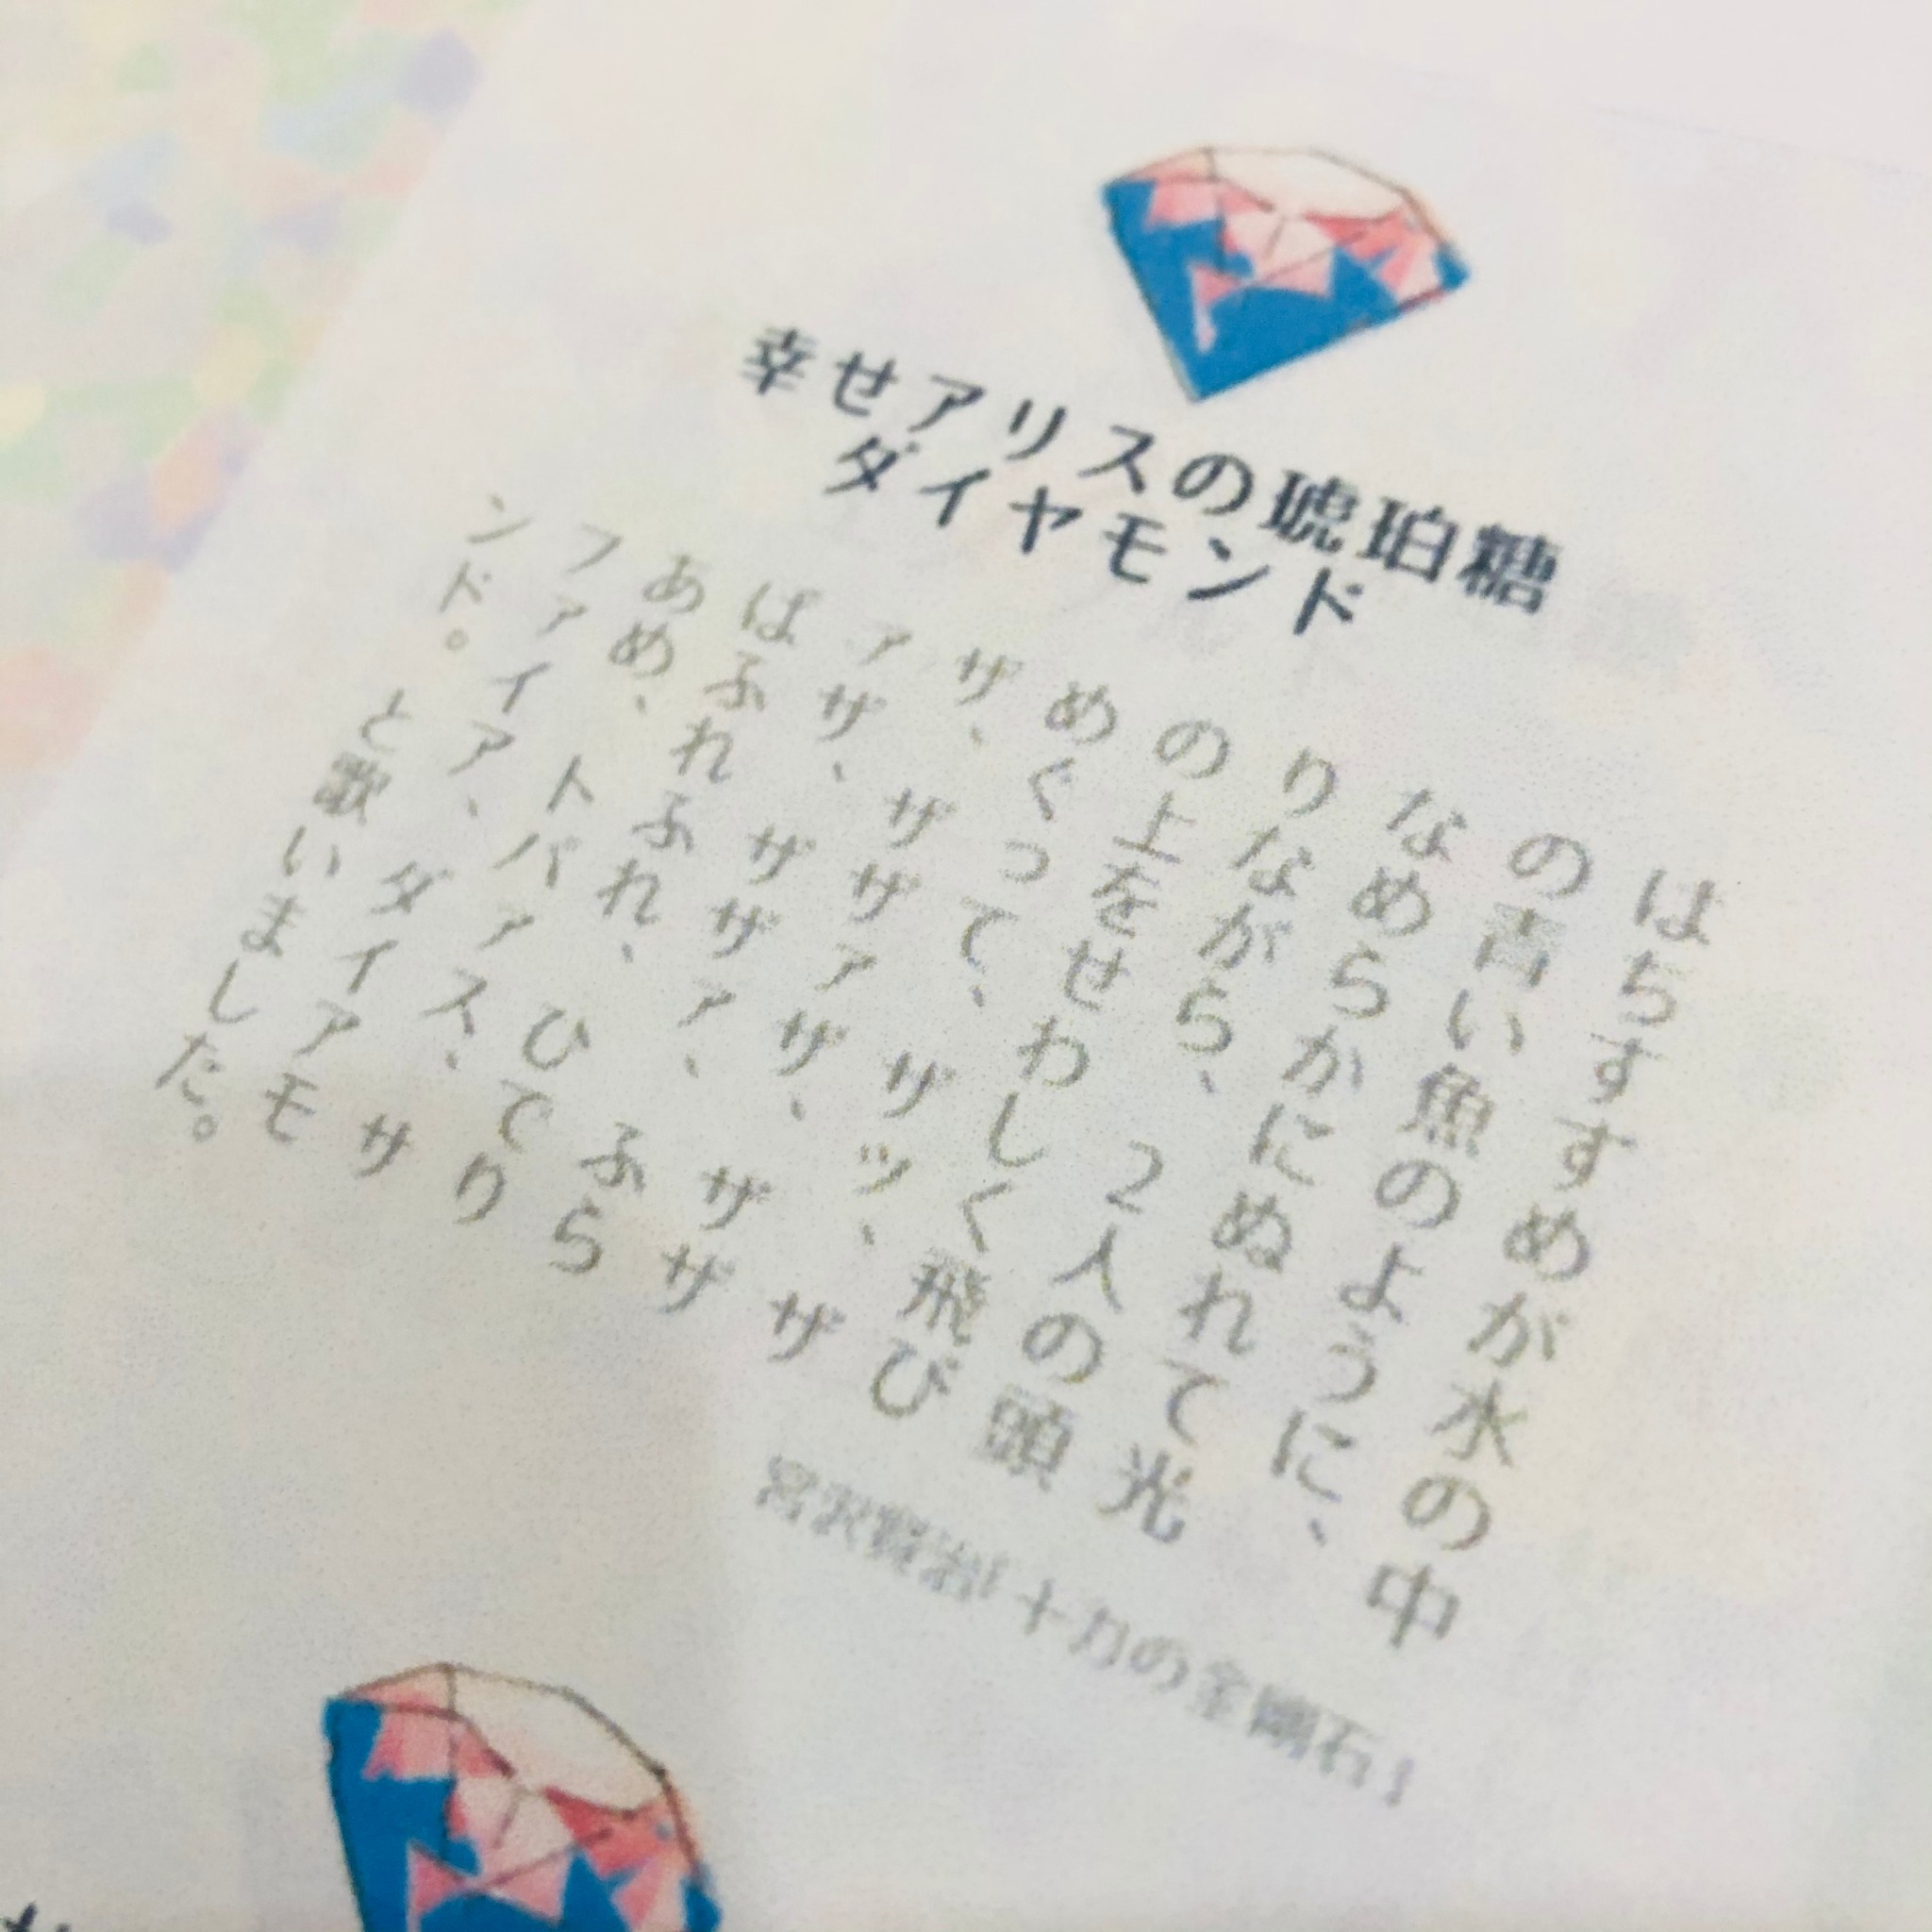 幸せアリスの琥珀糖
ダイヤモンド
はちすずめが水の中
の青い魚のように、
なめらかにぬれて光
りながら、2人の頭
の上をせわしく飛び
めぐって、
ザ、ザザァザ、ザッ、ザ
ァザ、ザザァザ、ザザ
ザザァ、ふらばふれふれ、ひでり
あめ、トパァス、サ
ファイア、ダイアモ
ンド。と歌いました。
宮沢賢治「十力の金剛石」